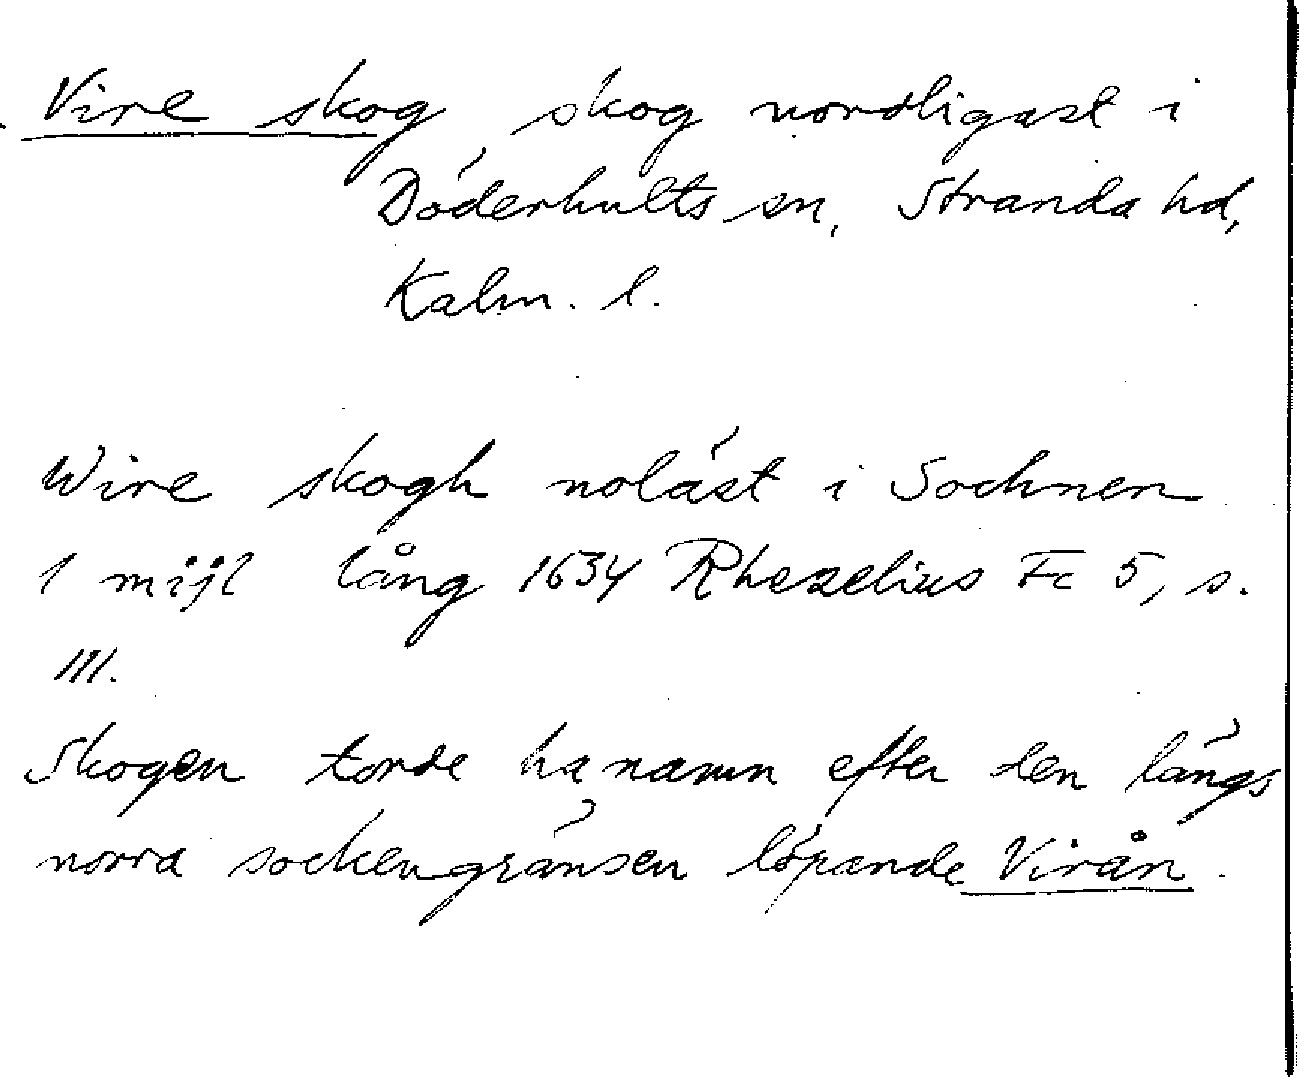 Vire skog skog nordligast i
Döderhults sn, Stranda hd,
Kalm. l.
Wire skogh noläst i Sochnen
1 mijl lång 1634 Rhezelius Fc 5, s.
111.
Skogen torde ha namn efter den längs
norra sockengränsen löpande Virån.